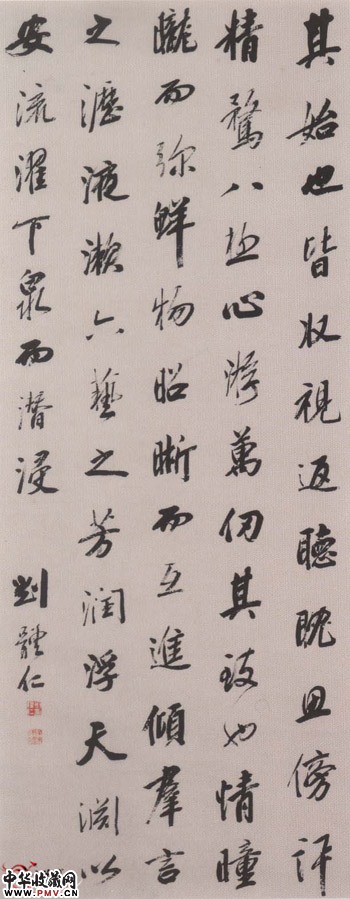 其始也皆收視返聽耽思傍訊
精騖八極心游萬仞其致也情曈
曨而彌鮮物昭晰而互進傾羣言
之瀝液漱六藝之芳潤浮天淵以
安流濯下泉而潛浸 劉體仁
中华收藏网
www.PMV.cn